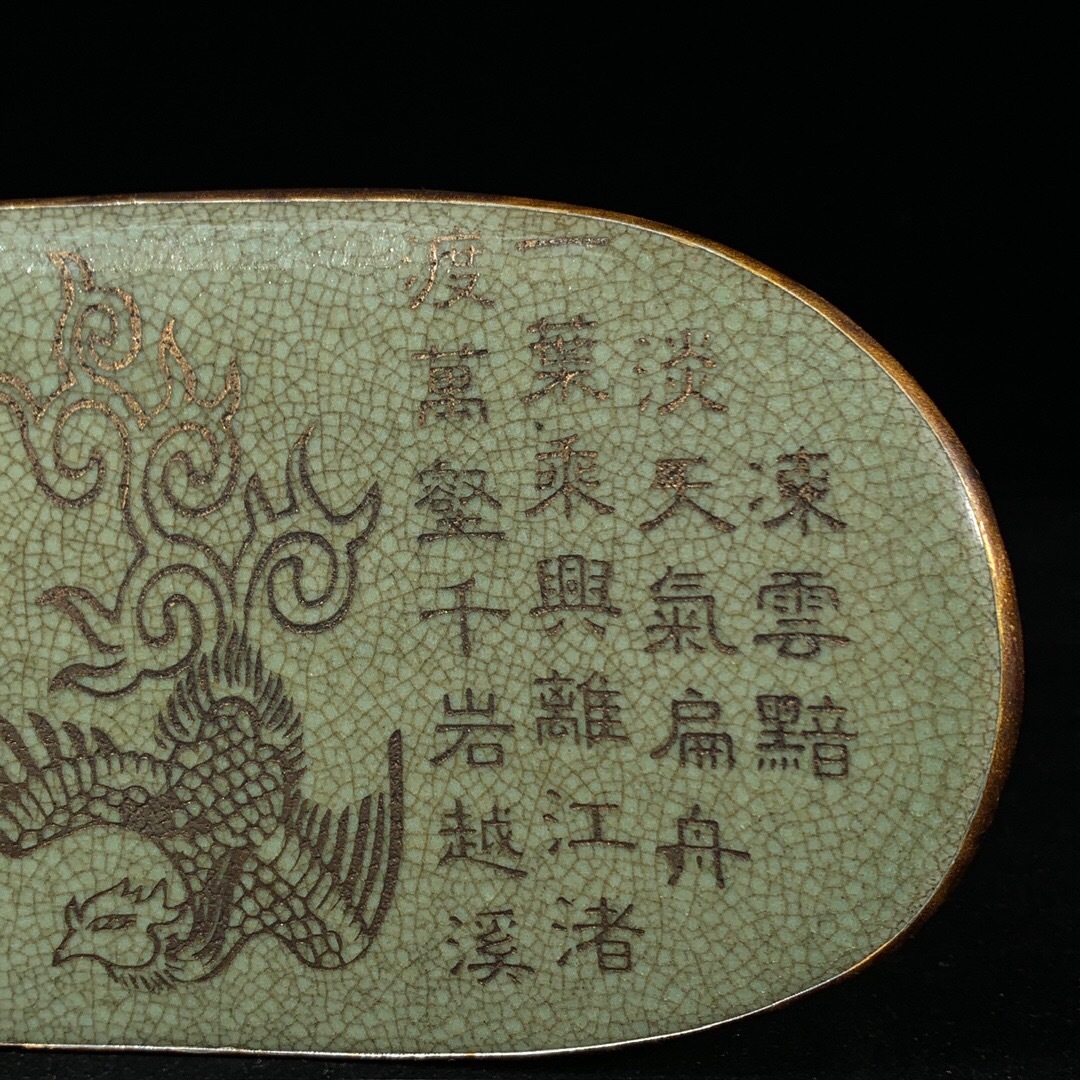 凍雲黯
淡天氣扁舟
一葉乘興離江渚
渡萬壑千岩越溪